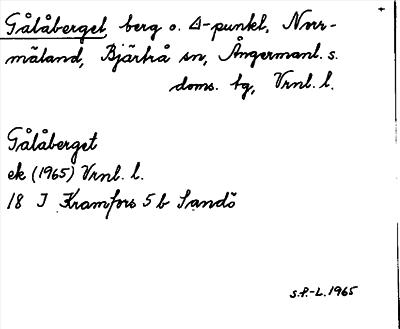 Gålåberget, berg o. Δ-punkt, Norr-
måland, Bjärtrå sn, Ångermanl. s.
doms. tg, Vrnl. l.
Gålåberget
ek (1965) Vrnl. l.
18 I Kramfors 5 b Sandö
S.F.-L. 1965